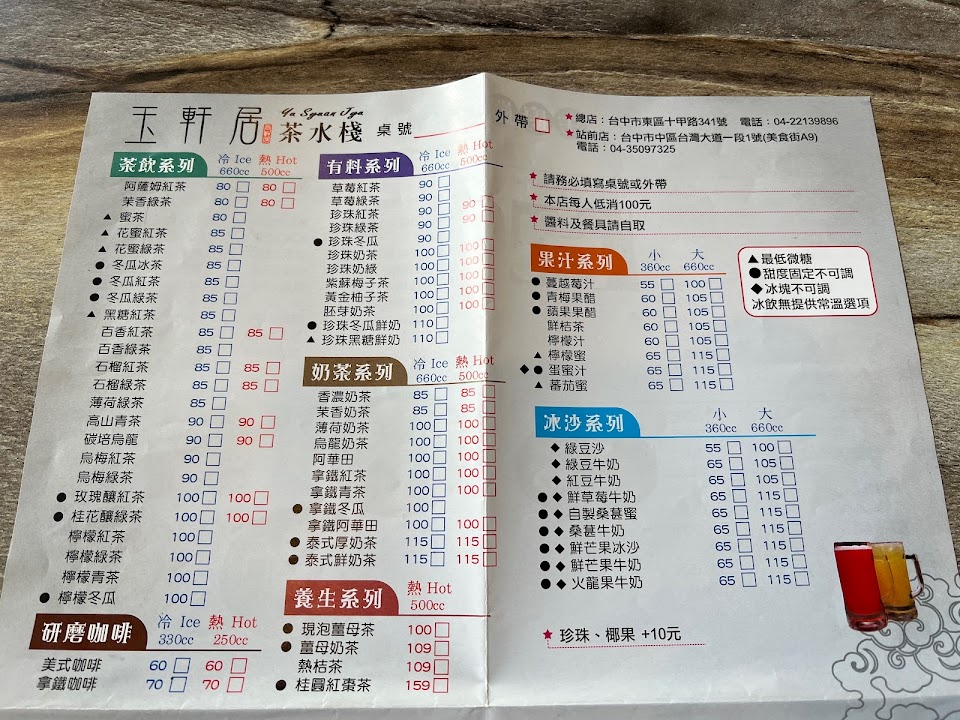 玉軒居
Yu Syuan Jyu
茶水棧 桌號
外帶
★總店：台中市東區十甲路341號 電話：04-22139896
★站前店：台中市中區台灣大道一段1號(美食街A9)
電話：04-35097325
★ 請務必填寫桌號或外帶
★ 本店每人低消100元
★ 醬料及餐具請自取
茶飲系列 冷 Ice 660cc 熱 Hot 500cc
阿薩姆紅茶 80 80
茉香綠茶 80 80
▲ 蜜茶 80
▲ 花蜜紅茶 85
▲ 花蜜綠茶 85
● 冬瓜冰茶 85
● 冬瓜紅茶 85
● 冬瓜綠茶 85
▲ 黑糖紅茶 85
百香紅茶 85 85
百香綠茶 85
石榴紅茶 85 85
石榴綠茶 85 85
薄荷綠茶 85
高山青茶 90 90
碳培烏龍 90 90
烏梅紅茶 90
烏梅綠茶 90
● 玫瑰釀紅茶 100 100
● 桂花釀綠茶 100 100
檸檬紅茶 100
檸檬綠茶 100
檸檬青茶 100
● 檸檬冬瓜 100
研磨咖啡 冷 Ice 330cc 熱 Hot 250cc
美式咖啡 60 60
拿鐵咖啡 70 70
有料系列 冷 Ice 660cc 熱 Hot 500cc
草莓紅茶 90
草莓綠茶 90 90
珍珠紅茶 90 90
珍珠綠茶 90
● 珍珠冬瓜 90
珍珠奶茶 100 100
珍珠奶綠 100 100
紫蘇梅子茶 100 100
黃金柚子茶 100 100
胚芽奶茶 100 100
● 珍珠冬瓜鮮奶 110
▲ 珍珠黑糖鮮奶 110
奶茶系列 冷 Ice 660cc 熱 Hot 500cc
香濃奶茶 85 85
茉香奶茶 85 85
薄荷奶茶 100 100
烏龍奶茶 100 100
阿華田 100 100
拿鐵紅茶 100 100
拿鐵青茶 100 100
● 拿鐵冬瓜 100
拿鐵阿華田 100 100
● 泰式厚奶茶 115 115
● 泰式鮮奶茶 115 115
養生系列 熱 Hot 500cc
● 現泡薑母茶 100
● 薑母奶茶 109
熱桔茶 109
● 桂圓紅棗茶 159
果汁系列 小 360cc 大 660cc
● 蔓越莓汁 55 100
● 青梅果醋 60 105
● 蘋果果醋 60 105
鮮桔茶 60 105
檸檬汁 60 105
▲ 檸檬蜜 65 115
◆● 蛋蜜汁 65 115
▲ 蕃茄蜜 65 115
▲最低微糖
●甜度固定不可調
◆冰塊不可調
冰飲無提供常溫選項
冰沙系列 小 360cc 大 660cc
◆ 綠豆沙 55 100
◆ 綠豆牛奶 65 105
◆ 紅豆牛奶 65 105
●◆ 鮮草莓牛奶 65 115
●◆ 自製桑葚蜜 65 115
●◆ 桑葚牛奶 65 115
●◆ 鮮芒果冰沙 65 115
●◆ 鮮芒果牛奶 65 115
●◆ 火龍果牛奶 65 115
★ 珍珠、椰果 +10元